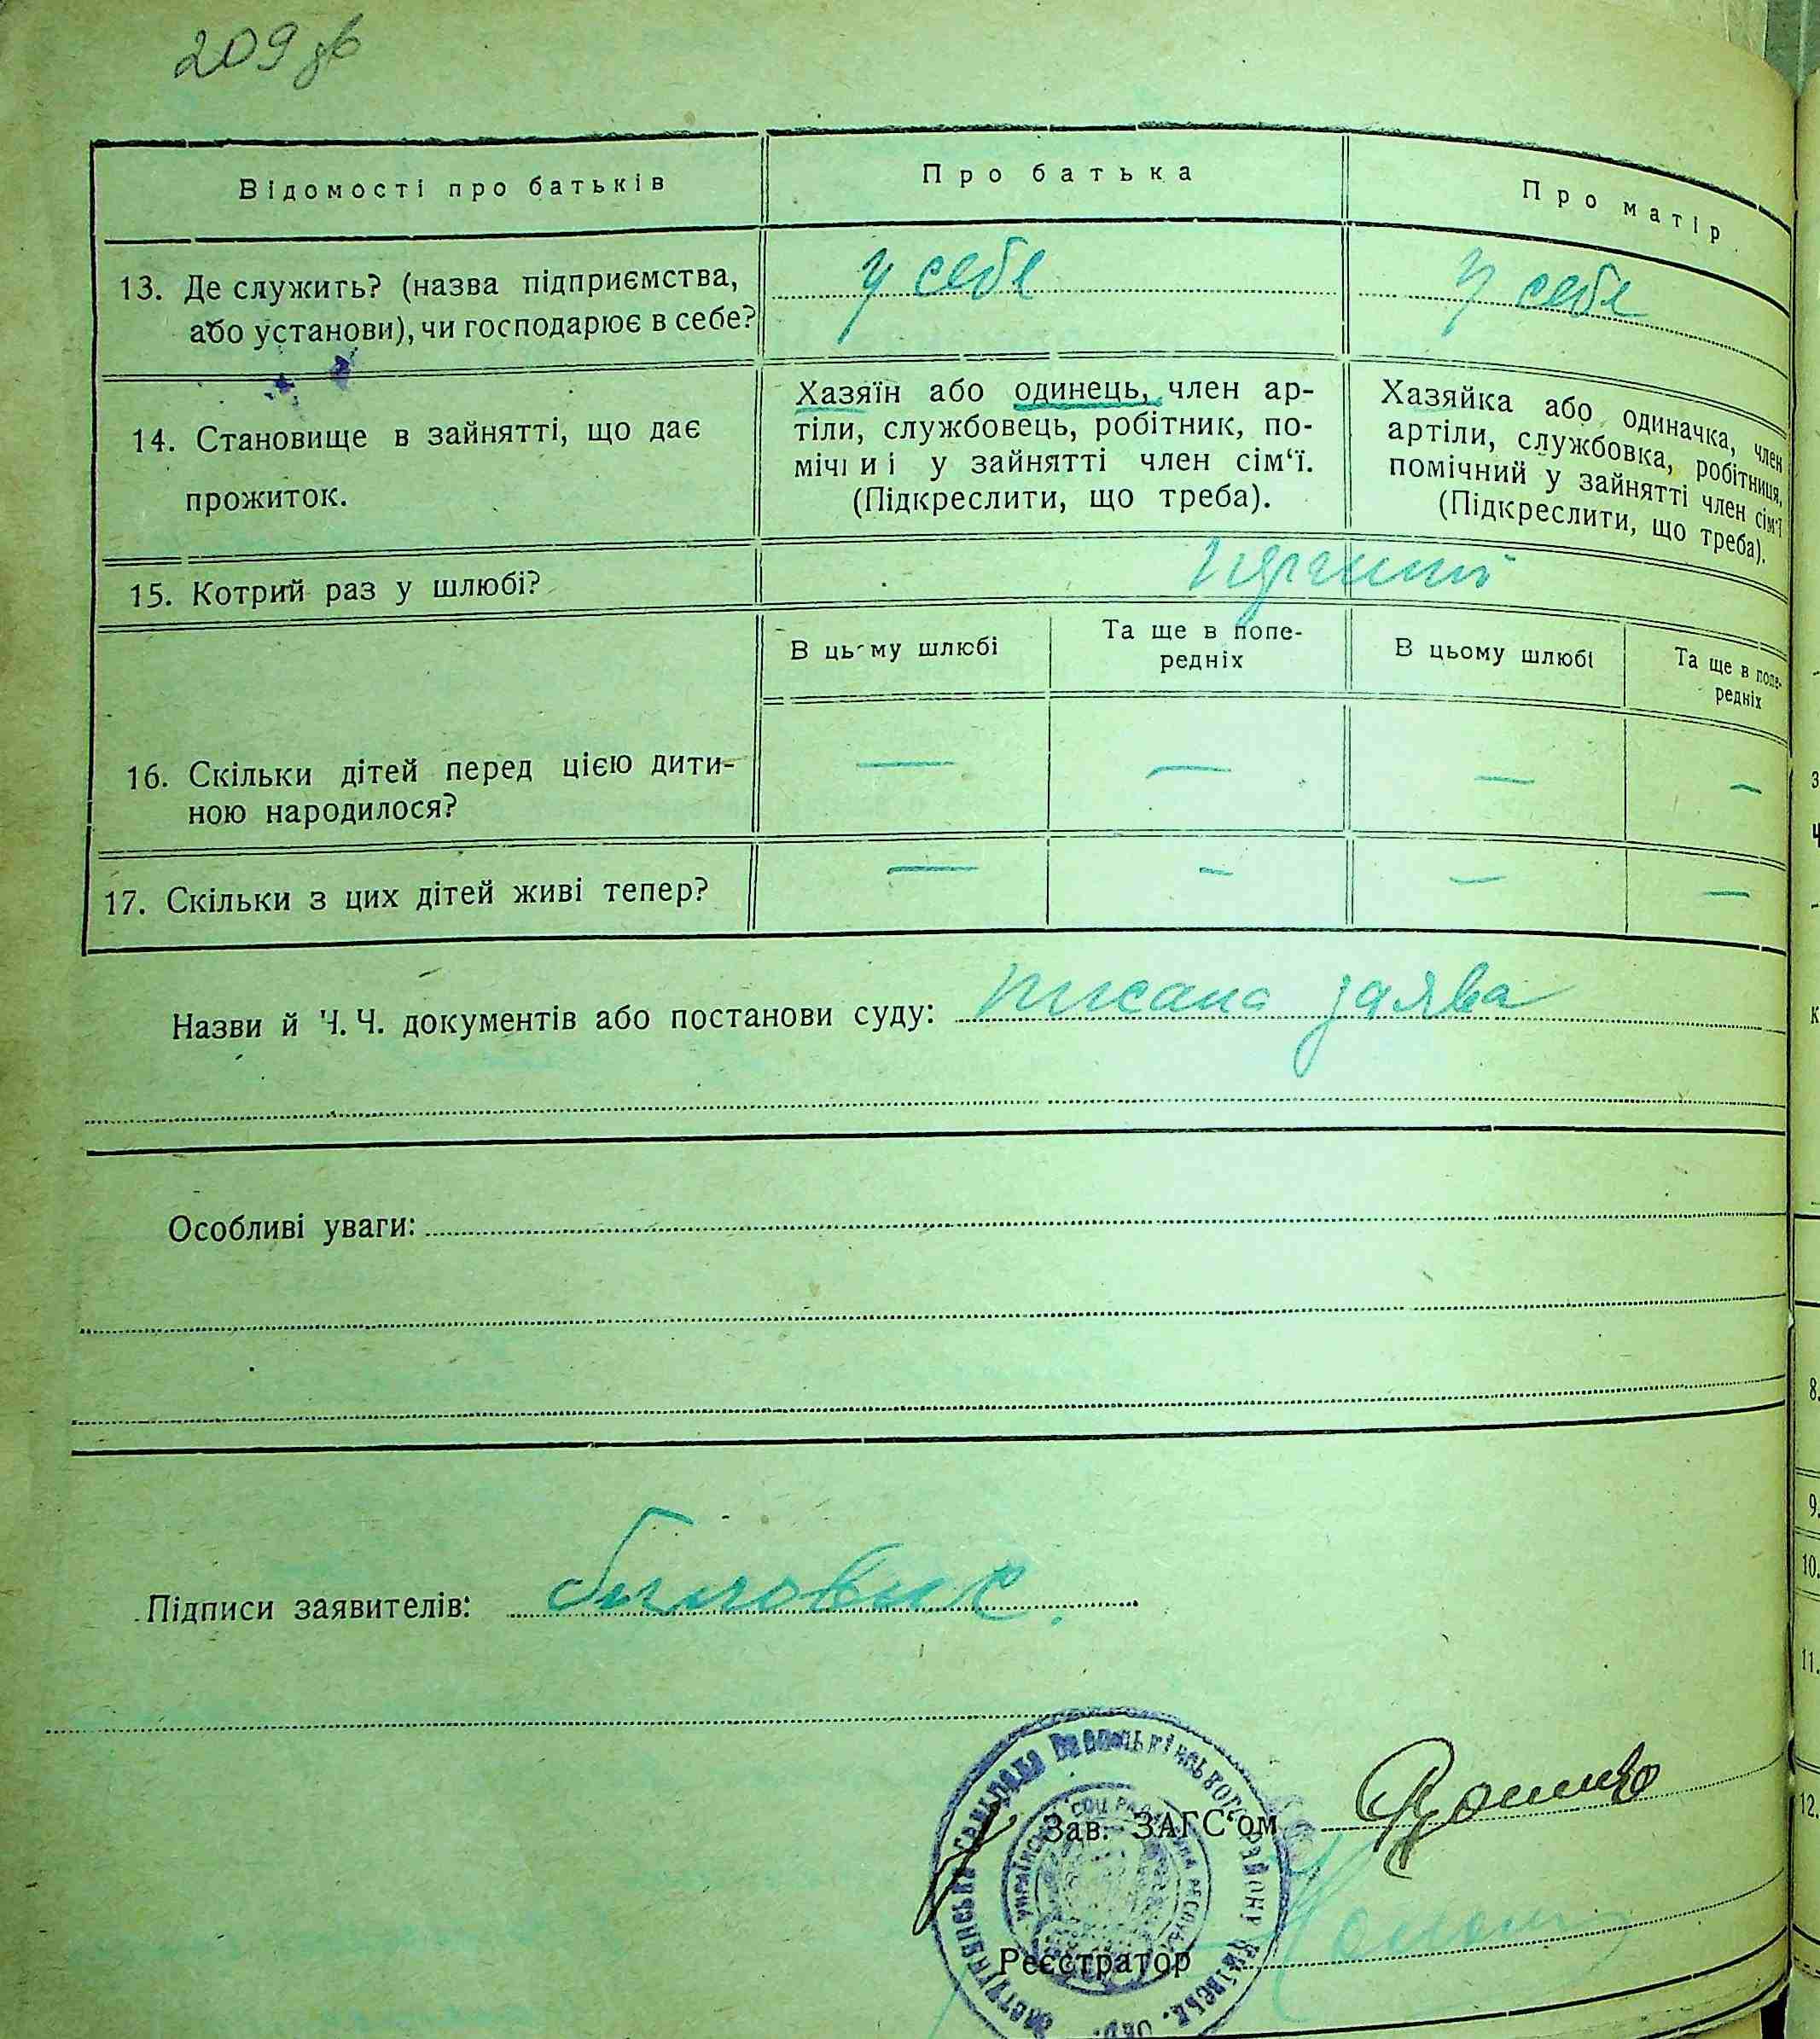 209 зв
Відомості про батьків
Про батька
Про матір
13. Де служить? (назва підприємства,
або установи), чи господарює в себе?
у себе
у себе
14. Становище в зайнятті, що дає
прожиток.
Хазяїн або одинець, член ар-
тіли, службовець, робітник, по-
мічний у зайнятті член сім‘ї.
(Підкреслити, що треба).
Хазяйка або одиначка, член
артіли, службовка, робітниця,
помічний у зайнятті член сім‘ї
(Підкреслити, що треба).
15. Котрий раз у шлюбі?
В цьому шлюбі
Та ще в попе-
редніх
В цьому шлюбі
Та ще в попе-
редніх
16. Скільки дітей перед цією дити-
ною народилося?
— — — —
17. Скільки з цих дітей живі тепер?
— — — —
Назви й Ч. Ч. документів або постанови суду: писана заява
Особливі уваги:
Підписи заявителів:
Зав. ЗАГС‘ом
Реєстратор
8.
9.
10.
11.
12.